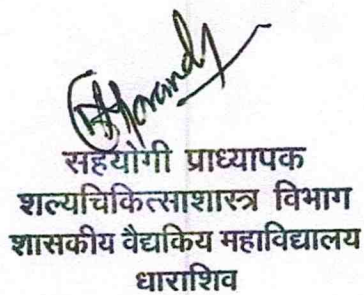 सहयोगी प्राध्यापक
शल्यचिकित्साशास्त्र विभाग
शासकीय वैद्यकिय महाविद्यालय
धाराशिव